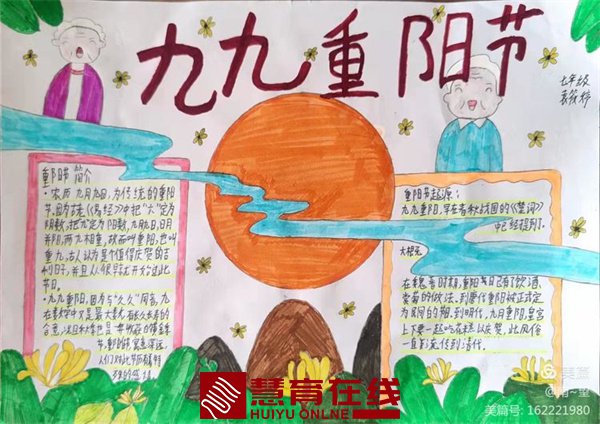 九九重阳节
七年级
重阳节简介
·农历九月九日，为传统的重阳
节。因为古老《易经》中把"六"定为
阴数，把"九"定为阳数，九月九日，日月
并阳，两九相重，故而叫重阳，也叫
重九，古人认为是个值得庆贺的吉
利日子，并且从很早就开始过此
节日。
·九九重阳，因为与"久久"同音，九
在数字中又是最大数，有长久长寿的
合意，
重阳节起源：
九九重阳，早在春秋战国的《楚词》
中已经提到了。
在魏晋时期，重阳节日已有了饮酒、
赏菊的做法。到唐代重阳被正式定
为民间的节期，到明代，九月重阳，皇宫
上下要一起吃花糕以庆贺，此风俗
一直流传到清代。
慧育在线
HUIYU ONLINE
美篇
美篇号: 162221980